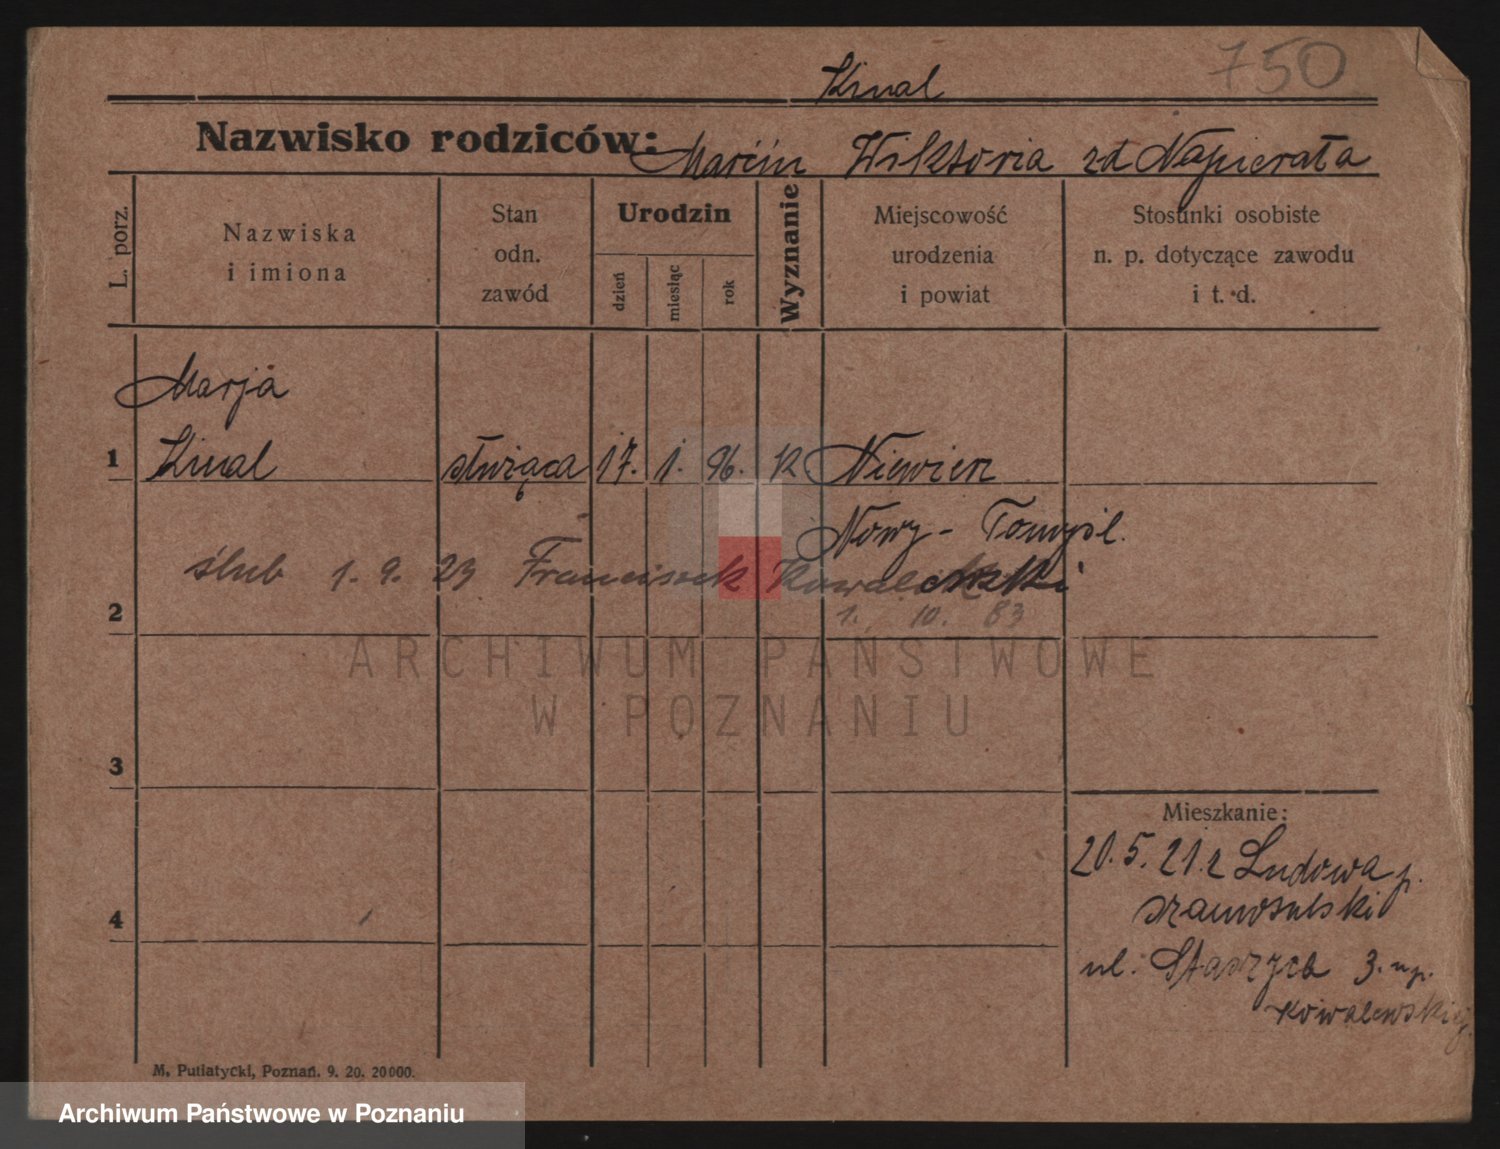 750
Kinal
Nazwisko rodziców: Marcin Wiktoria zd Napierała
L. porz.
Nazwiska
i imiona
Stan
odn.
zawód
Urodzin
dzień
miesiąc
rok
Wyznanie
Miejscowość
urodzenia
i powiat
Stosunki osobiste
n. p. dotyczące zawodu
i t. d.
Marja
1 Kinal służąca 17. 1. 96. K Niewierz
Nowy-Tomyśl.
ślub 1. 9. 23 Franciszek
1. 10. 83
2
3
Mieszkanie:
20.5.21. z Ludowa p.
szamotulski
4
ul. Staszyca 3.
Kowalewskiej
M. Putiatycki, Poznań. 9. 20. 20000.
ARCHIWUM PAŃSTWOWE
W POZNANIU
Archiwum Państwowe w Poznaniu